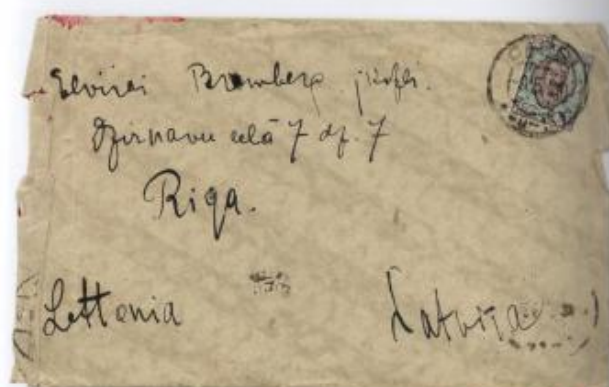 Elvirai Bromberg jkdzei.
Dzirnavu ielā 7 dz. 7
Riga.
Lettonia Latvija